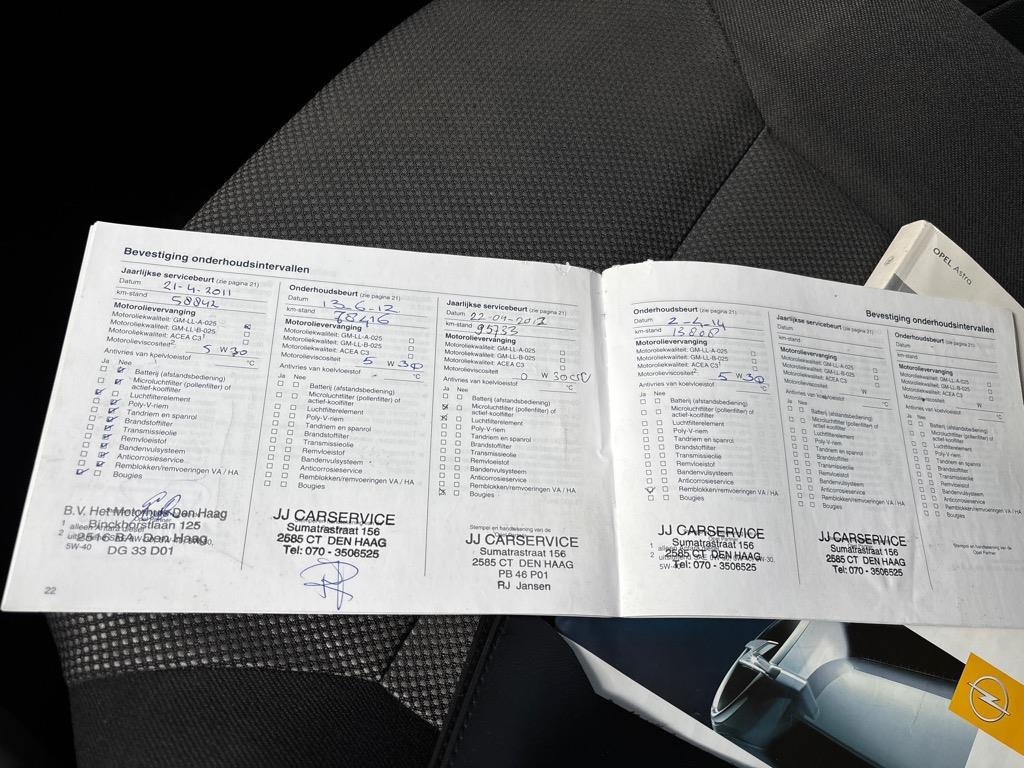 Bevestiging onderhoudsintervallen
Jaarlijkse servicebeurt (zie pagina 21)
Datum 21-4-2011
km-stand 58842
Motorolievervanging
Motoroliekwaliteit: GM-LL-A-025
Motoroliekwaliteit: GM-LL-B-025
Motoroliekwaliteit: ACEA C3¹
Motorolieviscositeit² 5 W 30
Antivries van koelvloeistof °C
Ja Nee
Batterij (afstandsbediening)
Microluchtfilter (pollenfilter) of
actief-koolfilter
Luchtfilterelement
Poly-V-riem
Tandriem en spanrol
Brandstoffilter
Transmissieolie
Remvloeistof
Bandenvulsysteem
Anticorrosieservice
Remblokken/remvoeringen VA / HA
Bougies
B.V. Het Motorhuis Den Haag
Binckhorstlaan 125
2516 BA Den Haag
DG 33 D01
5W-40
22
Onderhoudsbeurt (zie pagina 21)
Datum 13-6-12
km-stand 78416
Motorolievervanging
Motoroliekwaliteit: GM-LL-A-025
Motoroliekwaliteit: GM-LL-B-025
Motoroliekwaliteit: ACEA C3
Motorolieviscositeit 5 W 30
Antivries van koelvloeistof °C
Ja Nee
Batterij (afstandsbediening)
Microluchtfilter (pollenfilter) of
actief-koolfilter
Luchtfilterelement
Poly-V-riem
Tandriem en spanrol
Brandstoffilter
Transmissieolie
Remvloeistof
Bandenvulsysteem
Anticorrosieservice
Remblokken/remvoeringen VA / HA
Bougies
JJ CARSERVICE
Sumatrastraat 156
2585 CT DEN HAAG
Tel: 070 - 3506525
Jaarlijkse servicebeurt (zie pagina 21)
Datum
km-stand 95733
Motorolievervanging
Motoroliekwaliteit: GM-LL-A-025
Motoroliekwaliteit: GM-LL-B-025
Motoroliekwaliteit: ACEA C3
Motorolieviscositeit 0 W 30
Antivries van koelvloeistof °C
Ja Nee
Batterij (afstandsbediening)
Microluchtfilter (pollenfilter) of
actief-koolfilter
Luchtfilterelement
Poly-V-riem
Tandriem en spanrol
Brandstoffilter
Transmissieolie
Remvloeistof
Bandenvulsysteem
Anticorrosieservice
Remblokken/remvoeringen VA / HA
Bougies
Stempel en handtekening van de
JJ CARSERVICE
Sumatrastraat 156
2585 CT DEN HAAG
PB 46 P01
RJ Jansen
Bevestiging onderhoudsintervallen
Onderhoudsbeurt (zie pagina 21)
Datum 2-4-14
km-stand
Motorolievervanging
Motoroliekwaliteit: GM-LL-A-025
Motoroliekwaliteit: GM-LL-B-025
Motoroliekwaliteit: ACEA C3¹
Motorolieviscositeit² 5 W 30
Antivries van koelvloeistof °C
Ja Nee
Batterij (afstandsbediening)
Microluchtfilter (pollenfilter) of
actief-koolfilter
Luchtfilterelement
Poly-V-riem
Tandriem en spanrol
Brandstoffilter
Transmissieolie
Remvloeistof
Bandenvulsysteem
Anticorrosieservice
Remblokken/remvoeringen VA / HA
Bougies
JJ CARSERVICE
Sumatrastraat 156
2585 CT DEN HAAG
Tel: 070 - 3506525
Jaarlijkse servicebeurt (zie pagina 21)
Datum
km-stand
Motorolievervanging
Motoroliekwaliteit: GM-LL-A-025
Motoroliekwaliteit: GM-LL-B-025
Motoroliekwaliteit: ACEA C3
Motorolieviscositeit W
Antivries van koelvloeistof °C
Ja Nee
Batterij (afstandsbediening)
Microluchtfilter (pollenfilter) of
actief-koolfilter
Luchtfilterelement
Poly-V-riem
Tandriem en spanrol
Brandstoffilter
Transmissieolie
Remvloeistof
Bandenvulsysteem
Anticorrosieservice
Remblokken/remvoeringen VA / HA
Bougies
JJ CARSERVICE
Sumatrastraat 156
2585 CT DEN HAAG
Tel: 070 - 3506525
Onderhoudsbeurt (zie pagina 21)
Datum
km-stand
Motorolievervanging
Motoroliekwaliteit: GM-LL-A-025
Motoroliekwaliteit: GM-LL-B-025
Motoroliekwaliteit: ACEA C3
Motorolieviscositeit W
Antivries van koelvloeistof °C
Ja Nee
Batterij (afstandsbediening)
Microluchtfilter (pollenfilter) of
actief-koolfilter
Luchtfilterelement
Poly-V-riem
Tandriem en spanrol
Brandstoffilter
Transmissieolie
Remvloeistof
Bandenvulsysteem
Anticorrosieservice
Remblokken/remvoeringen VA / HA
Bougies
Stempel en handtekening van de
Opel Partner
OPEL Astra